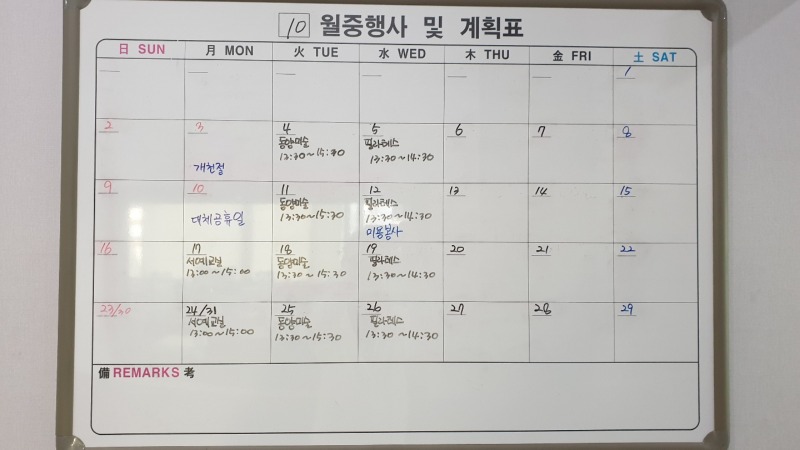 10 월중행사 및 계획표
日 SUN 月 MON 火 TUE 水 WED 木 THU 金 FRI 土 SAT
1
2 3 4 5 6 7 8
동양미술 필라테스
13:30~15:30 13:30~14:30
개천절
9 10 11 12 13 14 15
동양미술 필라테스
대체공휴일 13:30~15:30 13:30~14:30
미용봉사
16 17 18 19 20 21 22
서예교실 동양미술 필라테스
13:00~15:00 13:30~15:30 13:30~14:30
23/30 24/31 25 26 27 28 29
서예교실 동양미술 필라테스
13:00~15:00 13:30~15:30 13:30~14:30
備 REMARKS 考